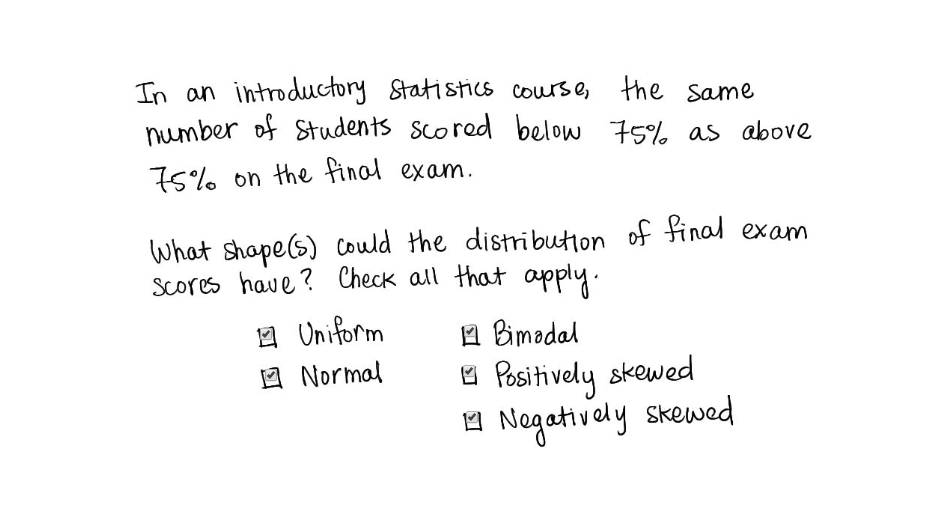 In an introductory Statistics course, the same
number of students scored below 75% as above
75% on the final exam.
What shape(s) could the distribution of final exam
scores have? Check all that apply.
Uniform
Bimodal
Normal
Positively skewed
Negatively skewed